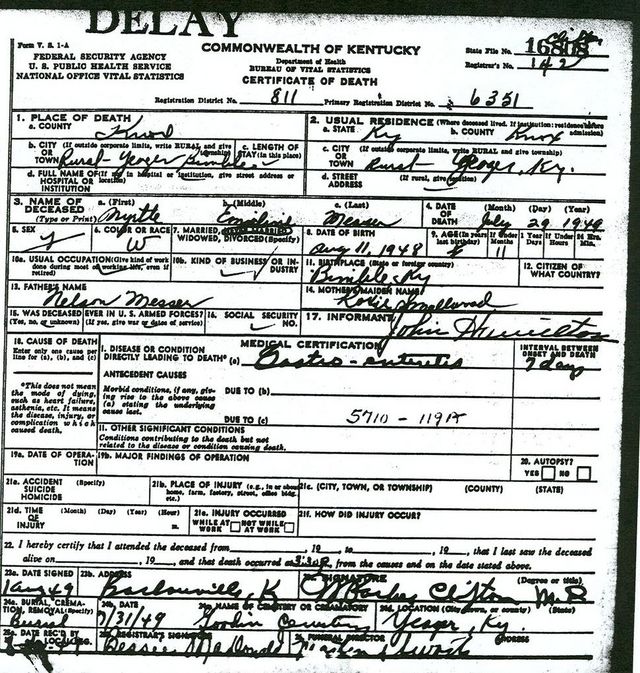 DELAY
Form V. S. 1-A
FEDERAL SECURITY AGENCY
U. S. PUBLIC HEALTH SERVICE
NATIONAL OFFICE VITAL STATISTICS
COMMONWEALTH OF KENTUCKY
Department of Health
BUREAU OF VITAL STATISTICS
CERTIFICATE OF DEATH
State File No. 16808
Registrar's No. 142
Registration District No. 811 Primary Registration District No. 6351
1. PLACE OF DEATH
a. COUNTY Knox
b. CITY (If outside corporate limits, write RURAL and give township)
OR TOWN Rural - Yeager
c. LENGTH OF STAY (in this place)
d. FULL NAME OF (If not in hospital or institution, give street address or location)
HOSPITAL OR INSTITUTION
2. USUAL RESIDENCE (Where deceased lived. If institution: residence before admission)
a. STATE Ky b. COUNTY Knox
c. CITY (If outside corporate limits, write RURAL and give township)
OR TOWN Rural - Yeager, Ky.
d. STREET ADDRESS (If rural, give location)
3. NAME OF DECEASED (Type or Print)
a. (First) Myrtle
b. (Middle)
c. (Last) Messer
4. DATE OF DEATH (Month) (Day) (Year)
July 29 1949
5. SEX F
6. COLOR OR RACE W
7. MARRIED, NEVER MARRIED, WIDOWED, DIVORCED (Specify)
8. DATE OF BIRTH Aug 11, 1948
9. AGE (In years last birthday) If Under 1 Year Months 11 Days If Under 24 Hrs. Hours Min.
10a. USUAL OCCUPATION (Give kind of work done during most of working life, even if retired)
10b. KIND OF BUSINESS OR INDUSTRY
11. BIRTHPLACE (State or foreign country) Bimble, Ky
12. CITIZEN OF WHAT COUNTRY?
13. FATHER'S NAME Nelson Messer
14. MOTHER'S MAIDEN NAME
15. WAS DECEASED EVER IN U. S. ARMED FORCES?
(Yes, no, or unknown) (If yes, give war or dates of service)
16. SOCIAL SECURITY NO.
17. INFORMANT John Hamilton
18. CAUSE OF DEATH
Enter only one cause per line for (a), (b), and (c)
*This does not mean the mode of dying, such as heart failure, asthenia, etc. It means the disease, injury, or complication which caused death.
MEDICAL CERTIFICATION
INTERVAL BETWEEN ONSET AND DEATH
I. DISEASE OR CONDITION DIRECTLY LEADING TO DEATH* (a) Gastro-enteritis 7 days
ANTECEDENT CAUSES
Morbid conditions, if any, giving rise to the above cause (a) stating the underlying cause last.
DUE TO (b)
DUE TO (c) 5710 - 119A
II. OTHER SIGNIFICANT CONDITIONS
Conditions contributing to the death but not related to the disease or condition causing death.
19a. DATE OF OPERATION
19b. MAJOR FINDINGS OF OPERATION
20. AUTOPSY?
YES NO
21a. ACCIDENT SUICIDE HOMICIDE (Specify)
21b. PLACE OF INJURY (e.g., in or about home, farm, factory, street, office bldg. etc.)
21c. (CITY, TOWN, OR TOWNSHIP) (COUNTY) (STATE)
21d. TIME OF INJURY (Month) (Day) (Year) (Hour) m.
21e. INJURY OCCURRED
WHILE AT WORK NOT WHILE AT WORK
21f. HOW DID INJURY OCCUR?
22. I hereby certify that I attended the deceased from 19 to , 19 , that I last saw the deceased
alive on , 19 , and that death occurred at m., from the causes and on the date stated above.
23a. DATE SIGNED 1 Aug 49
23b. ADDRESS Barbourville, K
23c. SIGNATURE Clifton M.D. (Degree or title)
24a. BURIAL, CREMATION, REMOVAL (Specify) Burial
24b. DATE 7/31/49
24c. NAME OF CEMETERY OR CREMATORY Cemetery
24d. LOCATION (City, town, or county) (State) Yeager, Ky.
25a. DATE REC'D BY LOCAL REG.
25b. REGISTRAR'S SIGNATURE Bessie McDonald
26. FUNERAL DIRECTOR ADDRESS